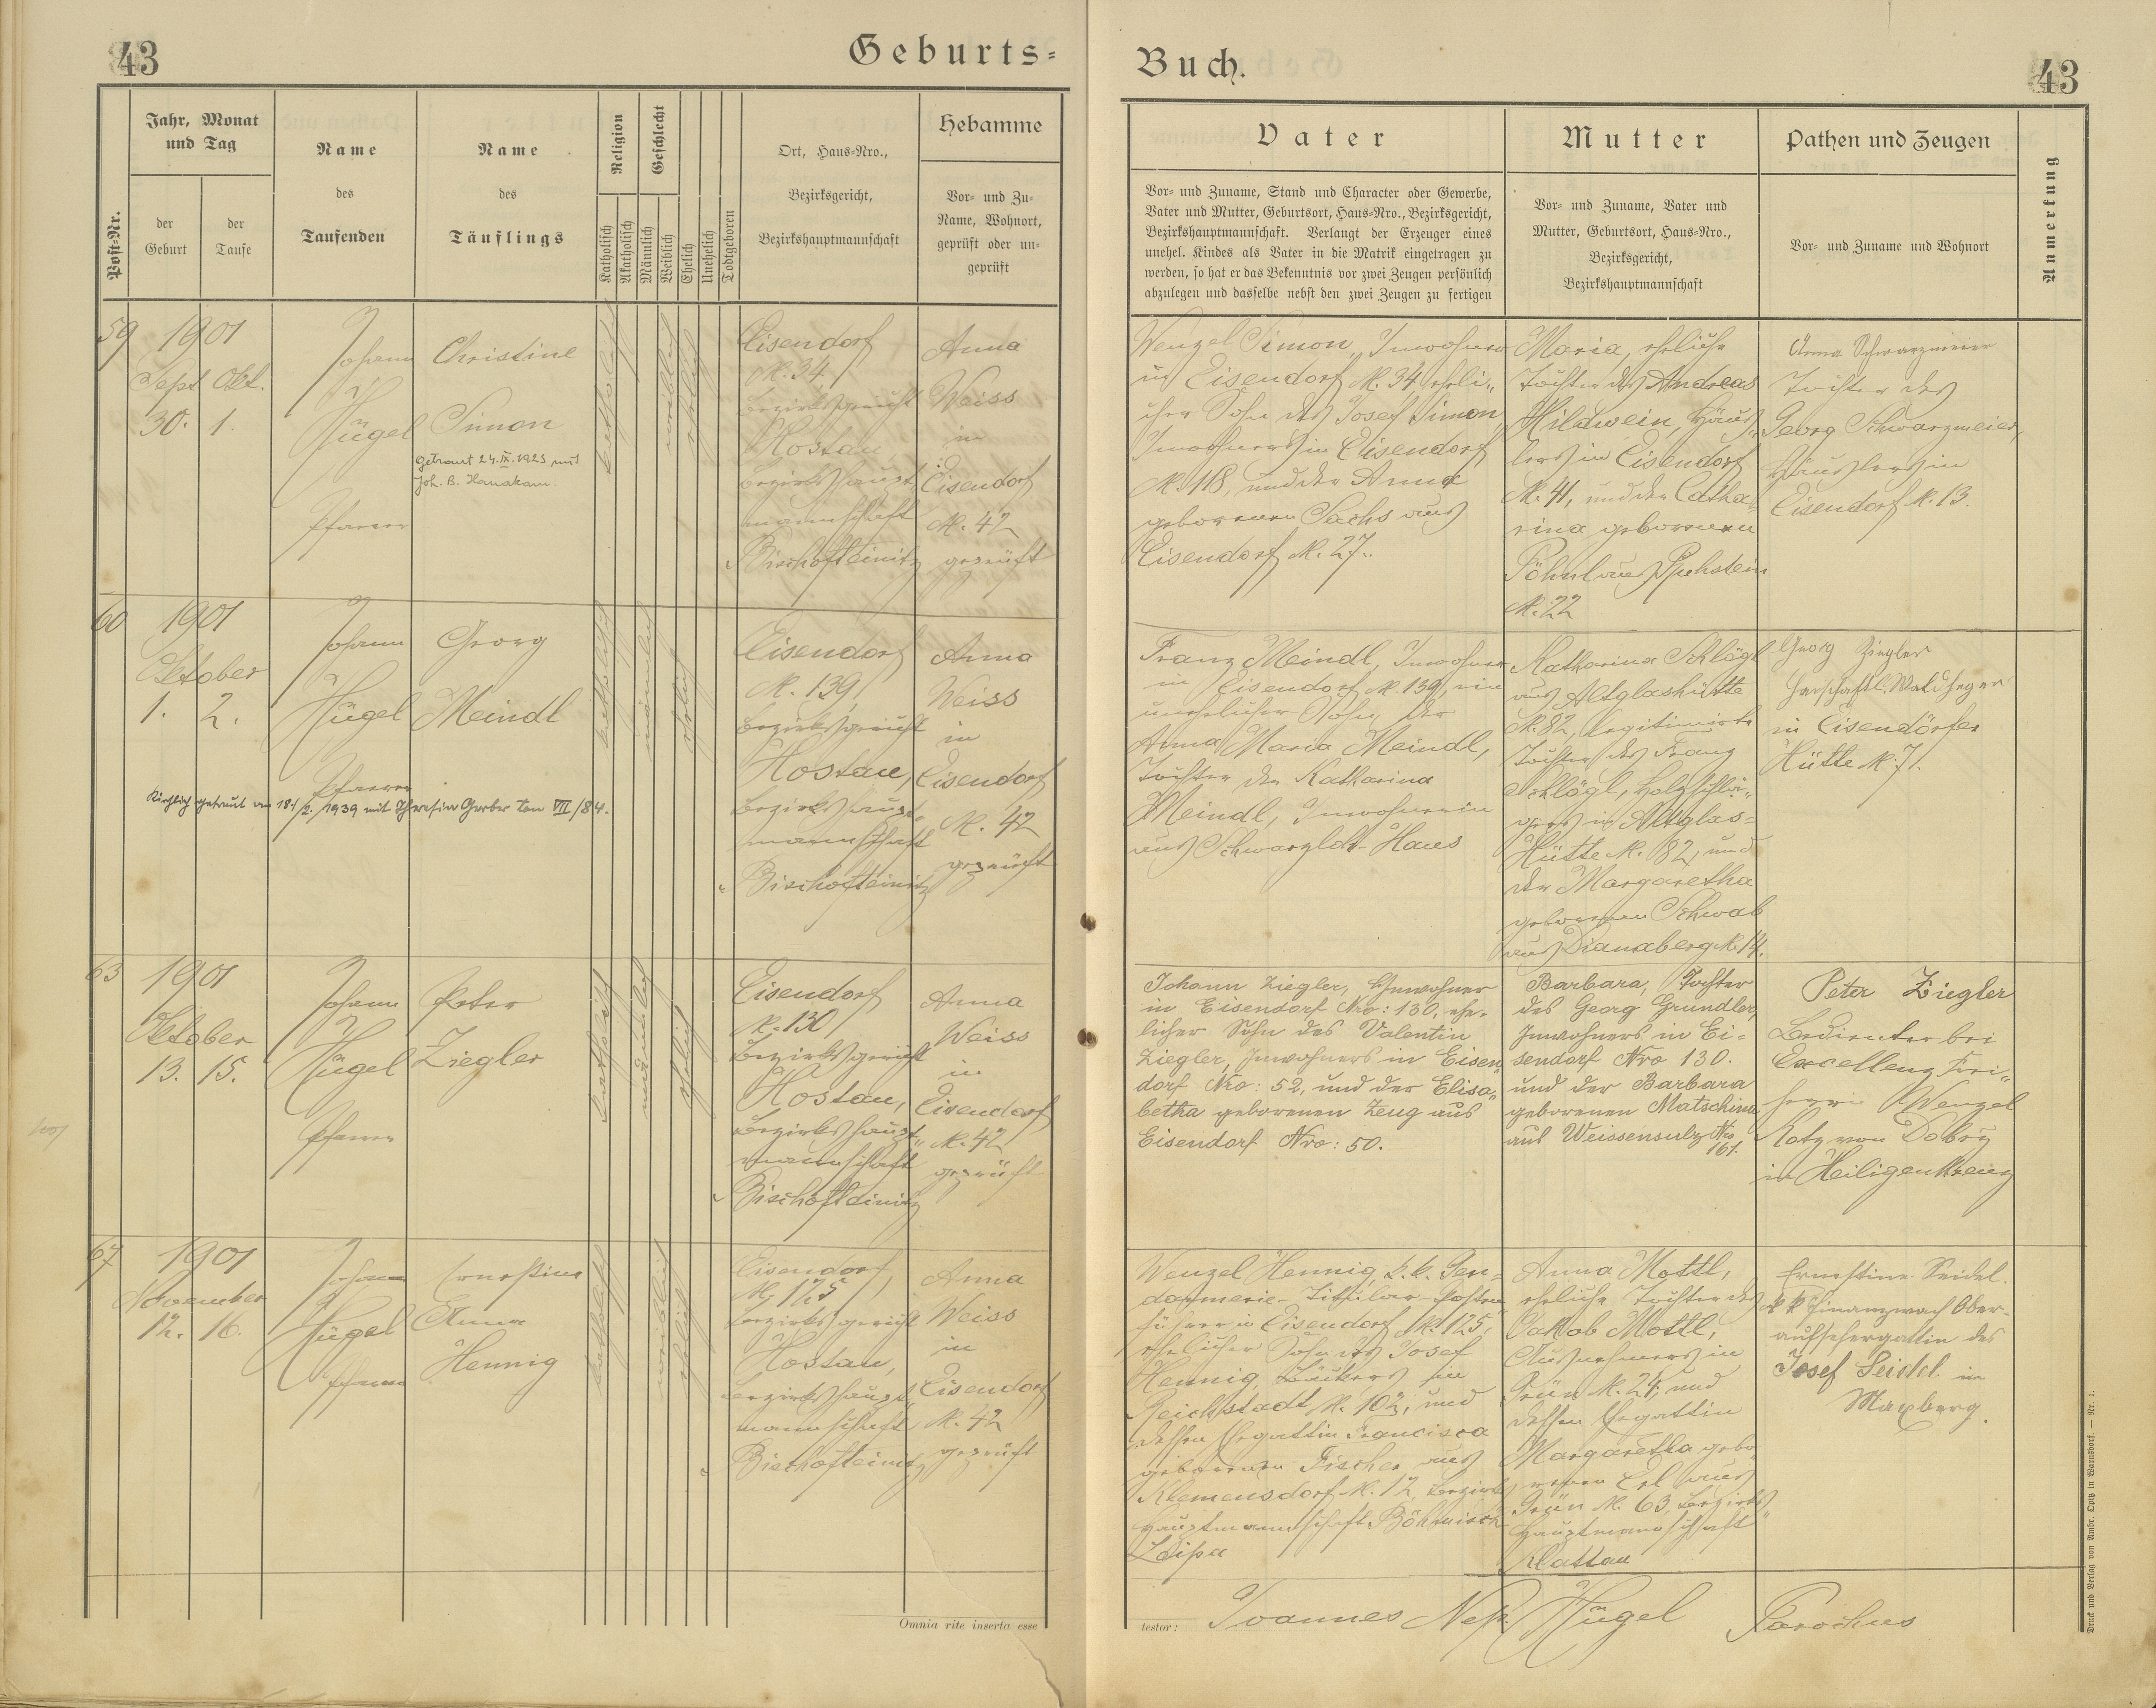 43
Geburts=
Post=Nr.
Jahr, Monat
und Tag
der
Geburt
der
Taufe
Name
des
Taufenden
Name
des
Täuflings
Religion
Katholisch
Akatholisch
Geschlecht
Männlich
Weiblich
Ehelich
Unehelich
Todtgeboren
Ort, Haus=Nro.,
Bezirksgericht,
Bezirkshauptmannschaft
Hebamme
Vor= und Zu=
Name, Wohnort,
geprüft oder un=
geprüft
59
1901
Sept. Okt.
30. 1.
Johann
Hügel
Pfarrer
Christine
Simon
getraut 24.IX.1923 mit
Joh. B. Hanakam.
katholisch
weiblich
ehelich
Eisendorf
N. 34
Bezirksgericht
Hostau,
Bezirkshaupt„
mannschaft
Bischofteinitz
Anna
Weiss
in
Eisendorf
N. 42
geprüft
60
1901
Oktober
1. 2.
Johann
Hügel
Pfarrer
Georg
Meindl
Kirchlich getraut am 18./2. 1939 mit Theresia Gerber tom VII/84.
katholisch
männlich
ehelich
Eisendorf
N. 139,
Bezirksgericht
Hostau,
Bezirkshaupt„
mannschaft
Bischofteinitz
Anna
Weiss
in
Eisendorf
N. 42
geprüft
63
1901
Oktober
13. 15.
Johann
Hügel
Pfarrer
Peter
Ziegler
katholisch
männlich
ehelich
Eisendorf
N. 130
Bezirksgericht
Hostau,
Bezirkshaupt„
mannschaft
Bischofteinitz
Anna
Weiss
in
Eisendorf
N. 42
geprüft
67
1901
November
12. 16.
Johann
Hügel
Pfarrer
Ernestine
Anna
Hennig
katholisch
weiblich
ehelich
Eisendorf
N. 125
Bezirksgericht
Hostau,
Bezirkshaupt„
mannschaft
Bischofteinitz
Anna
Weiss
in
Eisendorf
N. 42
geprüft
Omnia rite inserta esse
Buch.
43
Vater
Vor= und Zuname, Stand und Character oder Gewerbe,
Vater und Mutter, Geburtsort, Haus=Nro., Bezirksgericht,
Bezirkshauptmannschaft. Verlangt der Erzeuger eines
unehel. Kindes als Vater in die Matrik eingetragen zu
werden, so hat er das Bekenntnis vor zwei Zeugen persönlich
abzulegen und dasselbe nebst den zwei Zeugen zu fertigen
Mutter
Vor= und Zuname, Vater und
Mutter, Geburtsort, Haus=Nro.,
Bezirksgericht,
Bezirkshauptmannschaft
Pathen und Zeugen
Vor= und Zuname und Wohnort
Anmerkung
Wenzel Simon, Inwohner
in Eisendorf N. 34, eheli„
cher Sohn des Josef Simon,
Inwohners in Eisendorf
N. 118, und der Anna
geborenen Sachs aus
Eisendorf N. 27.
Maria, eheliche
Tochter des Andreas
Hildwein, Häus„
lers in Eisendorf
N. 41, und der Catha„
rina geborenen
Pöhnl aus Ruhstein
N. 22
Anna Schwarzmeier
Tochter des
Georg Schwarzmeier,
Häuslers in
Eisendorf N. 13.
Franz Meindl, Inwohner
in Eisendorf N. 139, ein
unehelicher Sohn der
Anna Maria Meindl,
Tochter der Katharina
Meindl, Inwohnerin
aus Haus
Katharina Schlögl
aus Altglashütte
N. 82, legitimirte
Tochter des Franz
Schlögl, Holzschlä„
gers in Altglas=
Hütte N. 82, und
der Margaretha
geborenen Schwab
aus Dianaberg N. 14.
Georg Ziegler
herschaftl. Waldheger
in Eisendörfer
Hütte N. 7.
Johann Ziegler, Inwohner
in Eisendorf Nro: 130, ehe„
licher Sohn des Valentin
Ziegler, Inwohners in Eisen„
dorf Nro: 52, und der Elisa„
betha geborenen Zeug aus
Eisendorf Nro: 50.
Barbara, Tochter
des Georg Grundler,
Inwohners in Ei=
sendorf Nro 130.
und der Barbara
geborenen Matschina
aus Weissensulz Nro
161.
Peter Ziegler
Bedienter bei
Excellenz Frei„
herrn Wenzel
Kotz von Dobrz
in Heiligenkreuz
Wenzel Hennig, k. k. Gen=
darmerie-Titular-Posten„
führer in Eisendorf N. 125,
ehelicher Sohn des Josef
Hennig, Bäckers in
Reichstadt N. 102, und
dessen Ehegattin Francisca
geborenen Fischer aus
Klemensdorf N. 12, Bezirks„
hauptmannschaft Böhmisch
Leipa
Anna Mottl,
eheliche Tochter des
Jakob Mottl,
Ausnehmers in
Grün N. 24, und
dessen Ehegattin
Margaretha gebo„
renen Erl aus
Grün N. 63, Bezirks„
hauptmannschaft
Klattau
Ernestine Seidel.
k k Finanzwach Ober=
aufsehergattin des
Josef Seidel in
Maxberg.
testor: Joannes Nep. Hügel Parochus
Druck und Verlag von Ambr. Opitz in Warnsdorf. — Nr. 1.